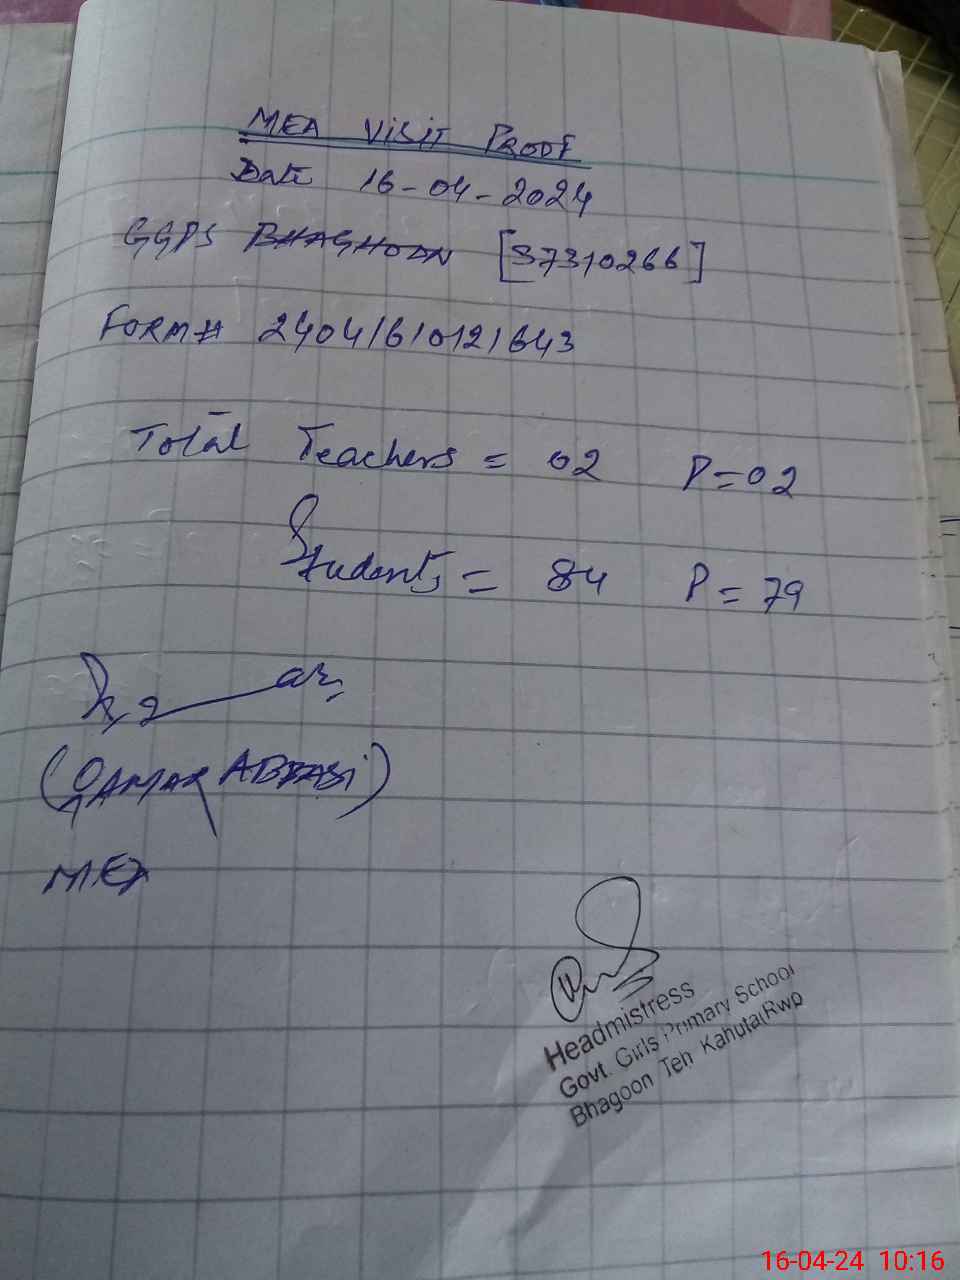 MEA VISIT PROOF
Date 16-04-2024
GGPS BHAGHOON [37310266]
FORM# 24041610121643
Total Teachers = 02 P=02
Students = 84 P=79
(QAMAR ABBASI)
MEA
Headmistress
Govt. Girls Primary School
Bhagoon Teh Kahuta(Rwp
16-04-24 10:16